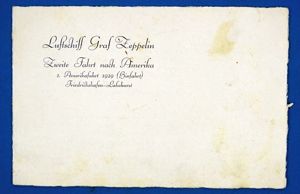 Luftschiff Graf Zeppelin
Zweite Fahrt nach Amerika
1. Amerikafahrt 1929 (Hinfahrt)
Friedrichshafen-Lakehurst